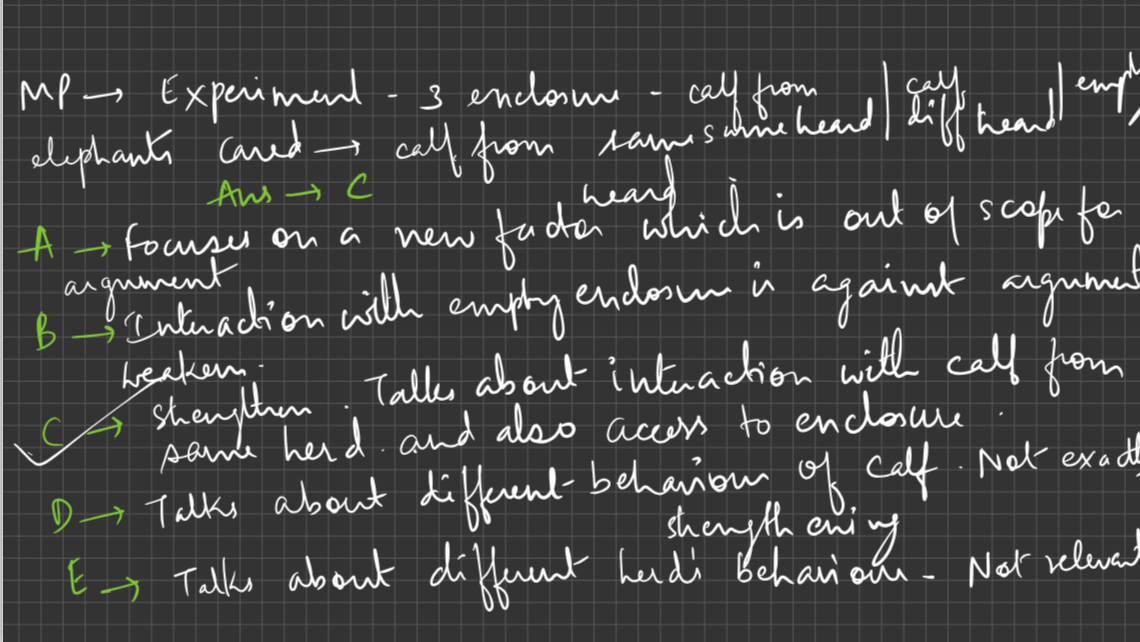 MP → Experiment - 3 enclosure - calf from same heard | calf diff heard | empt
elephants cared → calf from same heard
Ans → C
A → Focuses on a new factor which is out of scope for
argument
B → Interaction with empty enclosure is against argumen
weaken.
C → strengthen. Talks about interaction with calf from
same herd. and also access to enclosure.
D → Talks about different behaviour of calf. Not exact
strengthening
E → Talks about different herd's behaviour - Not relevant